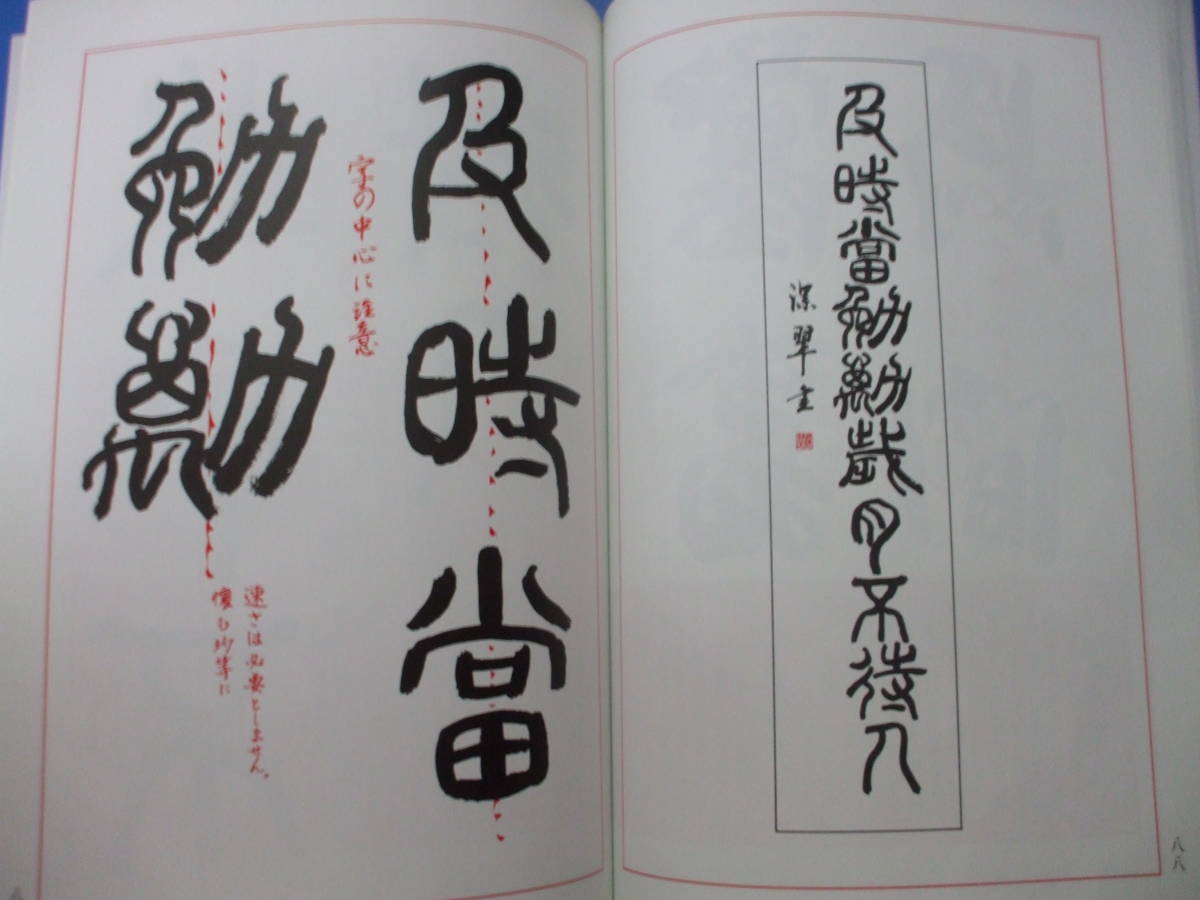 及時當勉勵歳月不待人
深翠書
八八
及時當
字の中心に注意
勉勵
速さは必要としません。